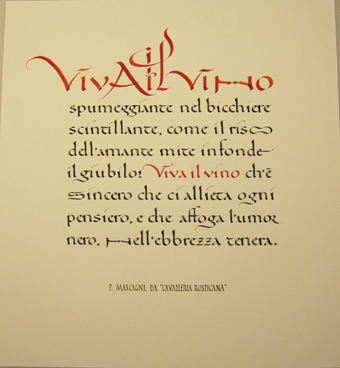 Viva il vino
spumeggiante nel bicchiere
scintillante, come il riso
dell'amante mite infonde
il giubilo! Viva il vino ch'è
sincero che ci allieta ogni
pensiero, e che affoga l'umor
nero, nell'ebbrezza tenera.
P. MASCAGNI, DA "CAVALLERIA RUSTICANA"